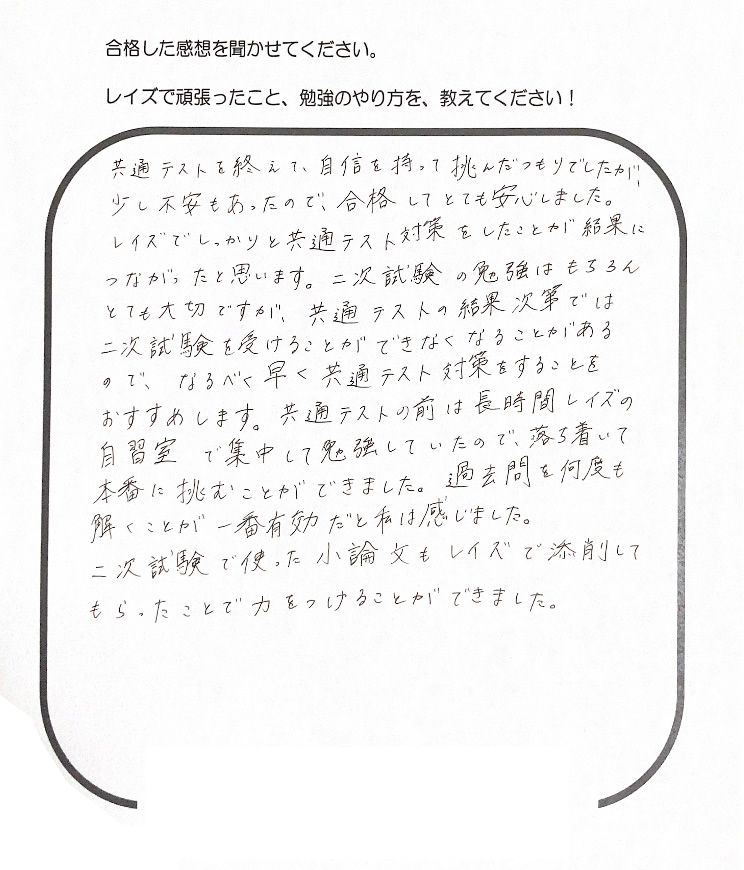 合格した感想を聞かせてください。
レイズで頑張ったこと、勉強のやり方を、教えてください！
共通テストを終えて、自信を持って挑んだつもりでしたが、
少し不安もあったので、合格してとても安心しました。
レイズでしっかりと共通テスト対策をしたことが結果に
つながったと思います。二次試験の勉強はもちろん
とても大切ですが、共通テストの結果次第では
二次試験を受けることができなくなることがある
ので、なるべく早く共通テスト対策をすることを
おすすめします。共通テストの前は長時間レイズの
自習室で集中して勉強していたので、落ち着いて
本番に挑むことができました。過去問を何度も
解くことが一番有効だと私は感じました。
二次試験で使った小論文もレイズで添削して
もらったことで力をつけることができました。